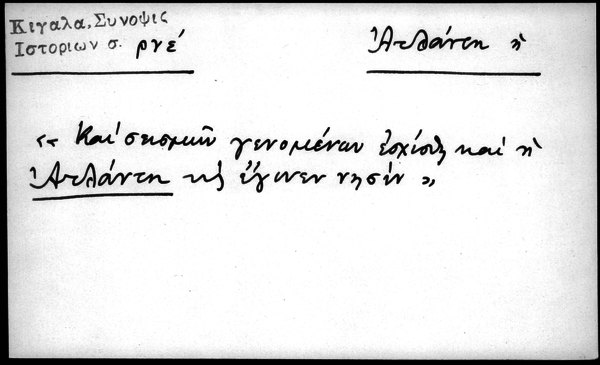 Κιγαλα, Συνοψις
Ιστοριων σ. ρνέ
Ἀτλάντη ἡ
« Καί σεισμῶν γενομένων ἐσχίσθη καί ἡ
Ἀτλάντη κὶ ἔγινεν νησίν »